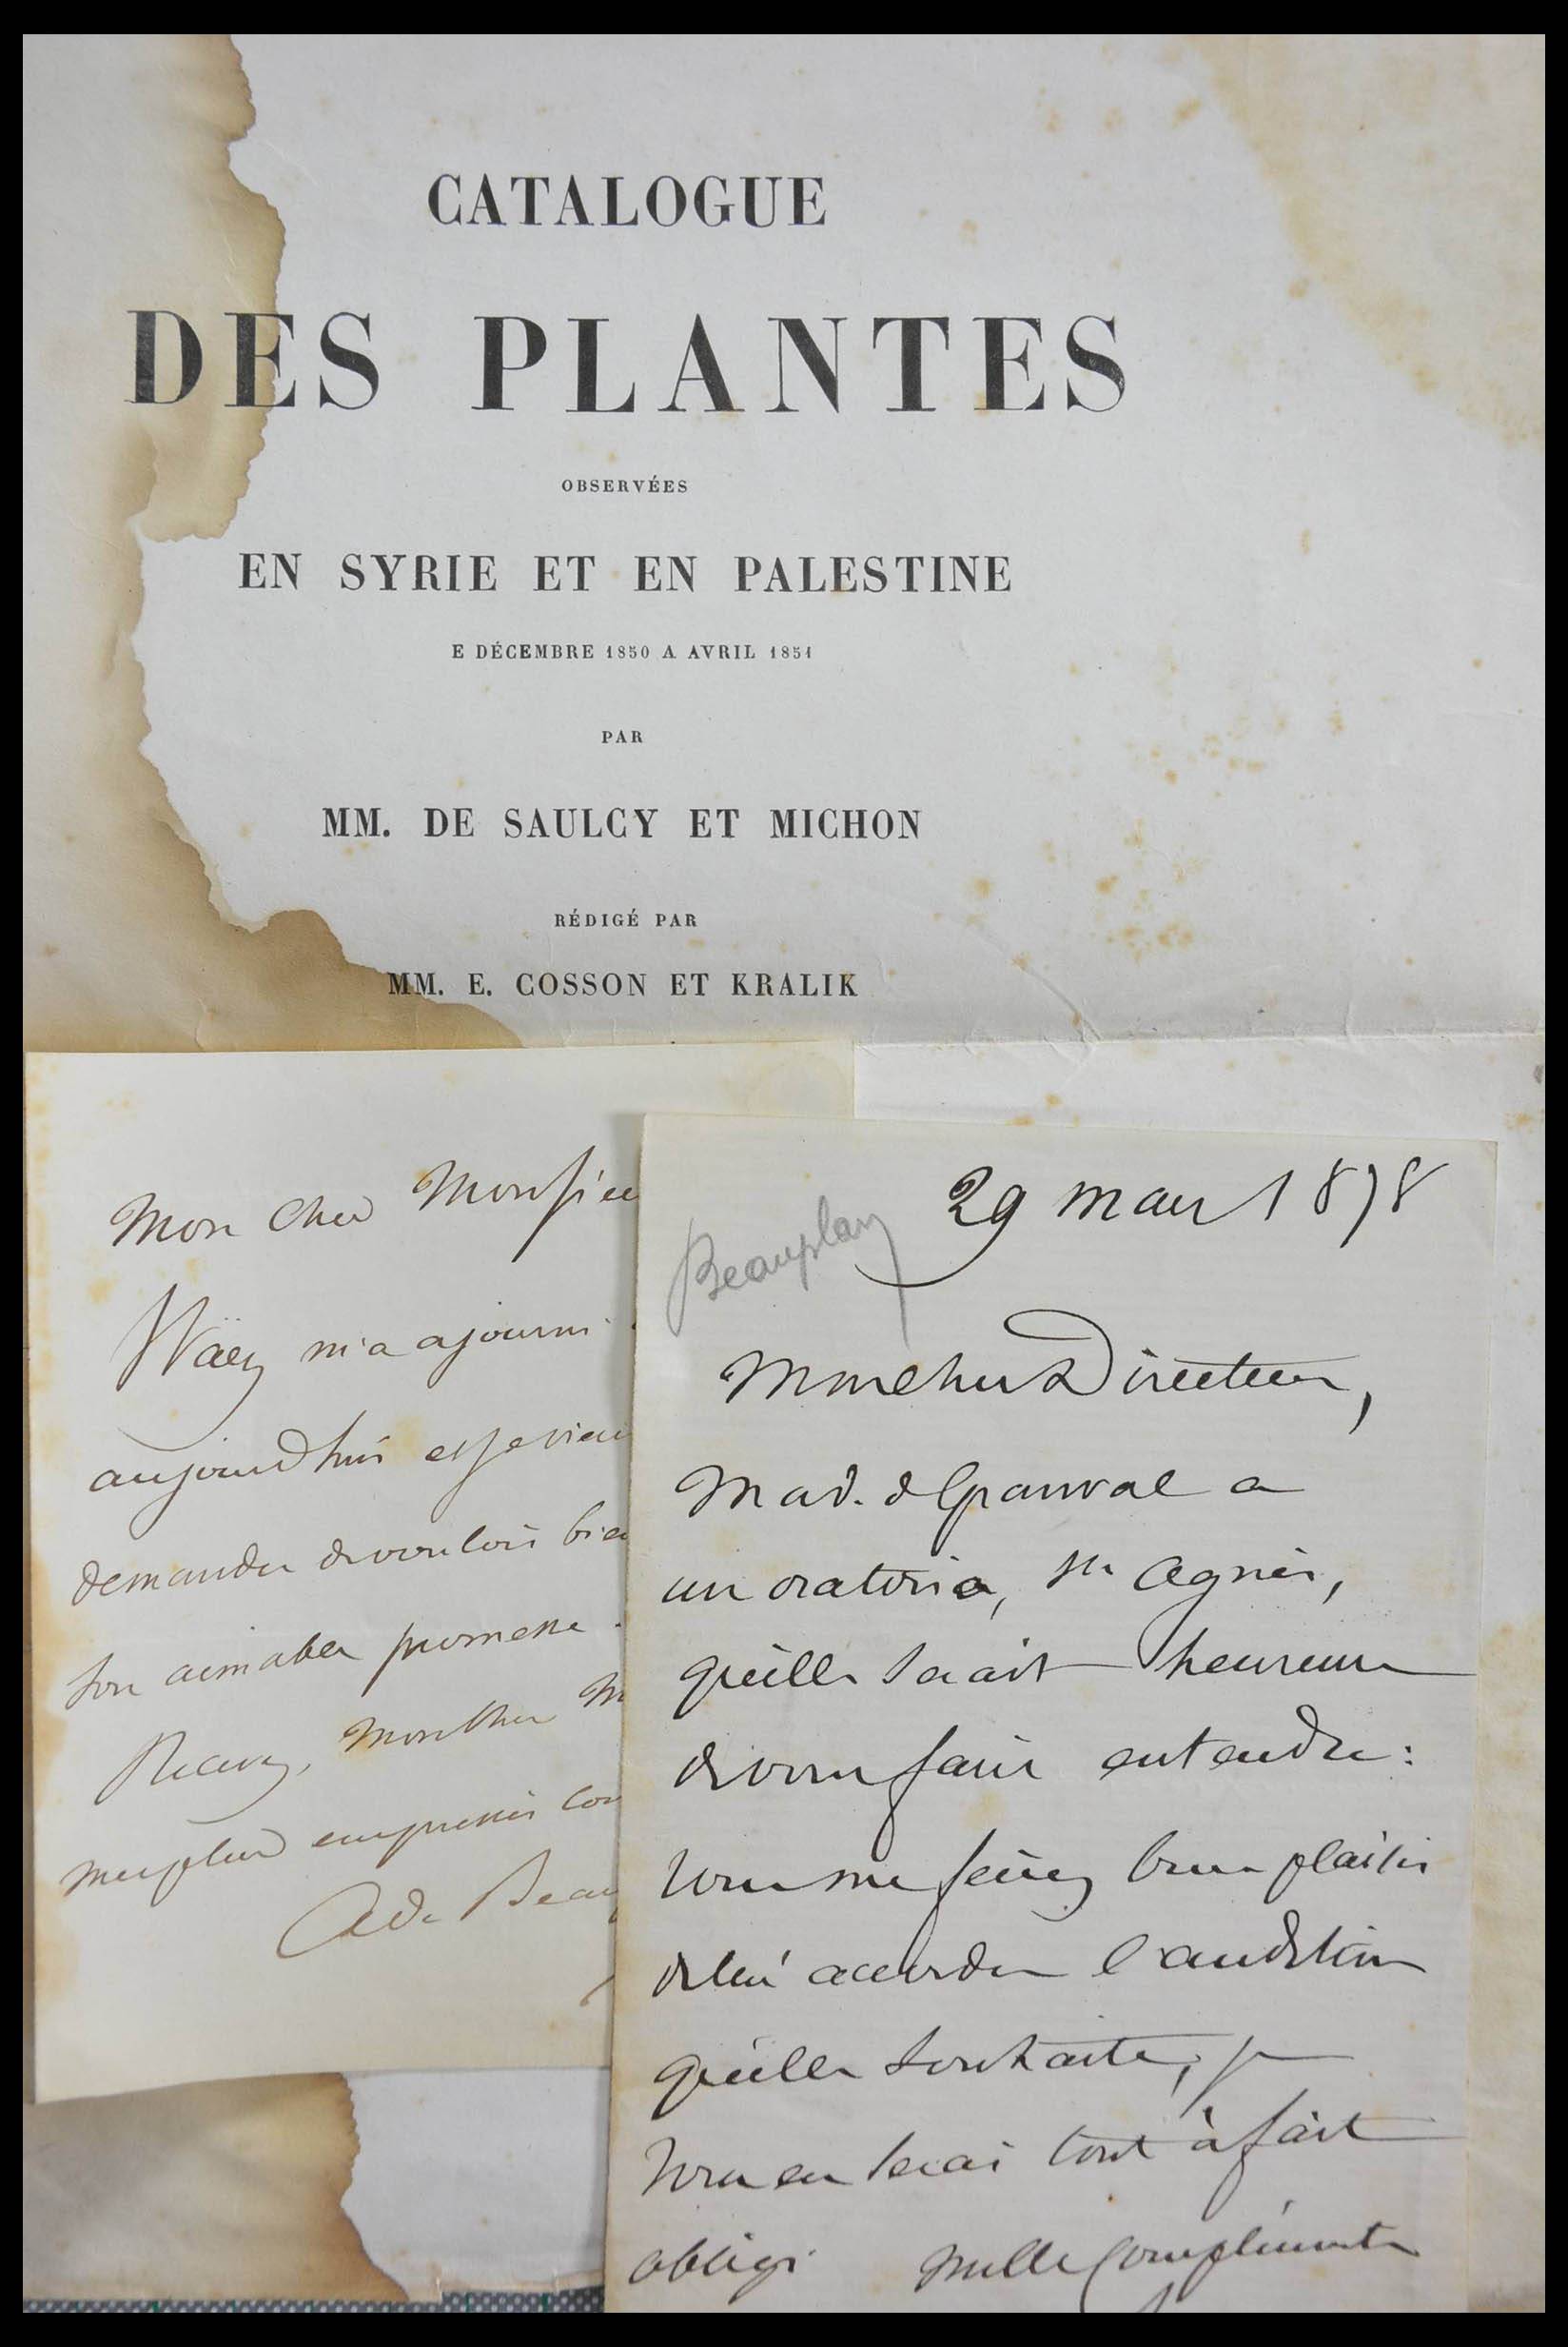 CATALOGUE
DES PLANTES
OBSERVÉES
EN SYRIE ET EN PALESTINE
E DÉCEMBRE 1850 A AVRIL 1851
PAR
MM. DE SAULCY ET MICHON
RÉDIGÉ PAR
MM. E. COSSON ET KRALIK
Mon Cher Monsieu
m'a ajourné
aujourd'hui et je vien
demander de vouloir bien
son aimable promesse.
Recevez, Mon Cher M
mes plus empressés com
Ad. Beau
Beauplan
29 mars 1878
Mon cher Directeur,
Mad. de Grandval a
un oratorio, Ste Agnès,
qu'elle serait heureuse
de vous faire entendre:
Vous me feriez bien plaisir
de lui accorder l'audition
qu'elle souhaite, je
vous en serai tout à fait
obligé. Mille compliments